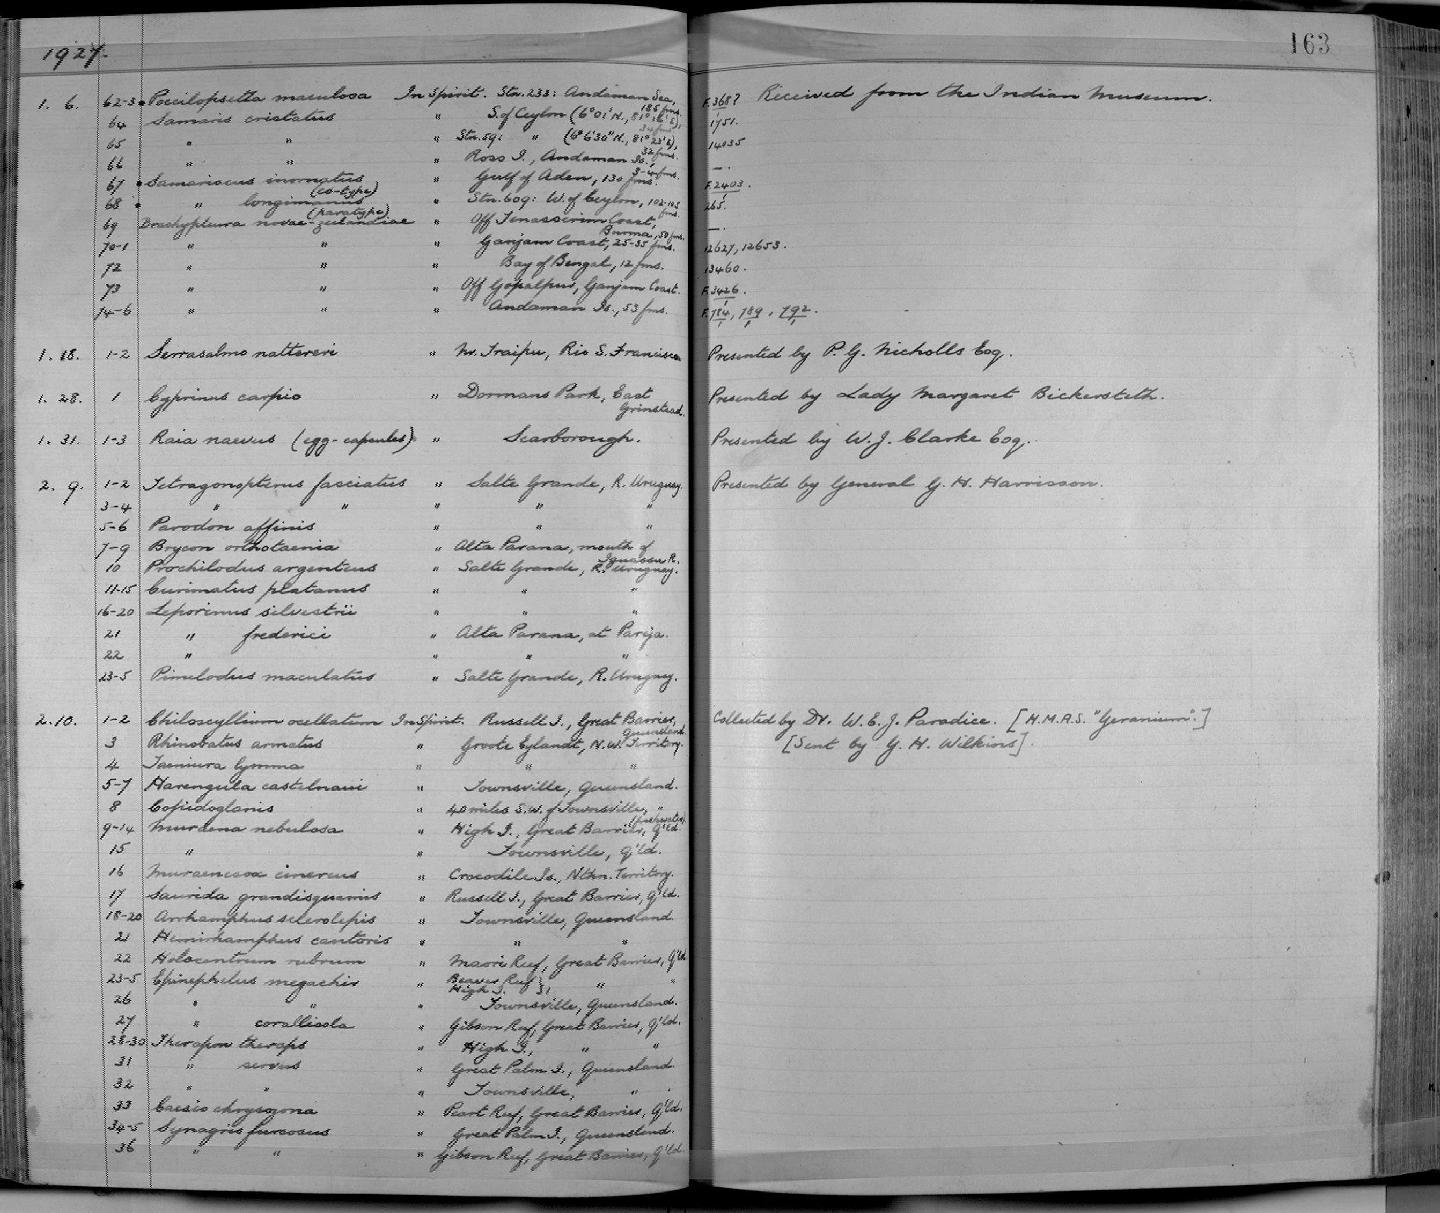 1927.
163
1. 6. 62-3 Poecilopsetta maculosa In Spirit. Stn. 233: Andaman Sea, 185 fms. F.3682/1 Received from the Indian Museum.
64 Samaris cristatus " S. of Ceylon (6°01' N., 81°16' E), 34 fms. 1751.
65 " " " Stn. 59: " (6°6'30" N., 81°23' E), 32 fms. 14035
66 " " " Ross I., Andaman Is., 3-4 fms. —.
67 Samariscus inornatus (co-type) " Gulf of Aden, 130 fms. F.2403/1.
68 " longimanus (paratype) " Stn. 609: W. of Ceylon, 102-105 fms. 265.
69 Brachypleura novae-zeelandiae " Off Tenasserim Coast, Burma, 50 fms. —.
70-1 " " " Ganjam Coast, 25-35 fms. 12627, 12653.
72 " " " Bay of Bengal, 12 fms. 13460.
73 " " " Off Gopalpur, Ganjam Coast. F.3426/1.
74-6 " " " Andaman Is., 53 fms. F.784/1, 789/1, 792/1.
1. 18. 1-2 Serrasalmo nattereri " Nr. Traipu, Rio S. Francisco Presented by P. G. Nicholls Esq.
1. 28. 1 Cyprinus carpio " Dormans Park, East Grinstead. Presented by Lady Margaret Bickersteth.
1. 31. 1-3 Raia naevus (egg-capsules) " Scarborough. Presented by W. J. Clarke Esq.
2. 9. 1-2 Tetragonopterus fasciatus " Salte Grande, R. Uruguay. Presented by General G. H. Harrisson.
3-4 " " " " "
5-6 Parodon affinis " " "
7-9 Brycon orthotaenia " Alta Parana, mouth of Iguassu R.
10 Prochilodus argenteus " Salte Grande, R. Uruguay.
11-15 Curimatus platanus " " "
16-20 Leporinus silvestrii " " "
21 " frederici " Alta Parana, at Parija.
22 " " " "
23-5 Pimelodus maculatus " Salte Grande, R. Uruguay.
2. 10. 1-2 Chiloscyllium ocellatum In Spirit. Russell I., Great Barrier, Queensland. Collected by Dr. W. E. J. Paradice. [H.M.A.S. "Geranium".]
3 Rhinobatus armatus " Groote Eylandt, N.W. Territory. [Sent by G. H. Wilkins].
4 Taeniura lymma " " "
5-7 Harengula castelnaui " Townsville, Queensland.
8 Copidoglanis " 40 miles S.W. of Townsville, " (freshwater)
9-14 Muraena nebulosa " High I., Great Barrier, Q'ld.
15 " " Townsville, Q'ld.
16 Muraenesox cinereus " Crocodile Is., Nthn. Territory.
17 Saurida grandisquamis " Russell I., Great Barrier, Q'ld.
18-20 Arrhamphus sclerolepis " Townsville, Queensland.
21 Hemirhamphus cantoris " " "
22 Holocentrum rubrum " Maori Reef, Great Barrier, Q'ld
23-5 Epinephelus megachir " Beaver Reef } High I. } " "
26 " " " Townsville, Queensland.
27 " corallicola " Gibson Reef, Great Barrier, Q'ld.
28-30 Therapon theraps " High I., " "
31 " servus " Great Palm I., Queensland
32 " " " Townsville, " "
33 Caesio chrysozona " Peart Reef, Great Barrier, Q'ld.
34-5 Synagris furcosus " Great Palm I., Queensland.
36 " " " Gibson Reef, Great Barrier, Q'ld.